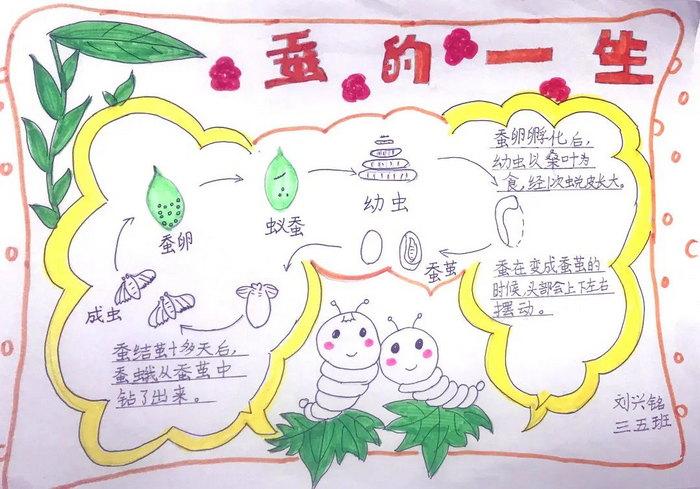 蚕的一生
蚕卵孵化后,
幼虫以桑叶为
食,经1次蜕皮长大。
蚕卵
蚁蚕
幼虫
蚕茧
蚕在变成蚕茧的
时候,头部会上下左右
摆动。
成虫
蚕结茧十多天后,
蚕蛾从蚕茧中
钻了出来。
刘兴铭
三五班